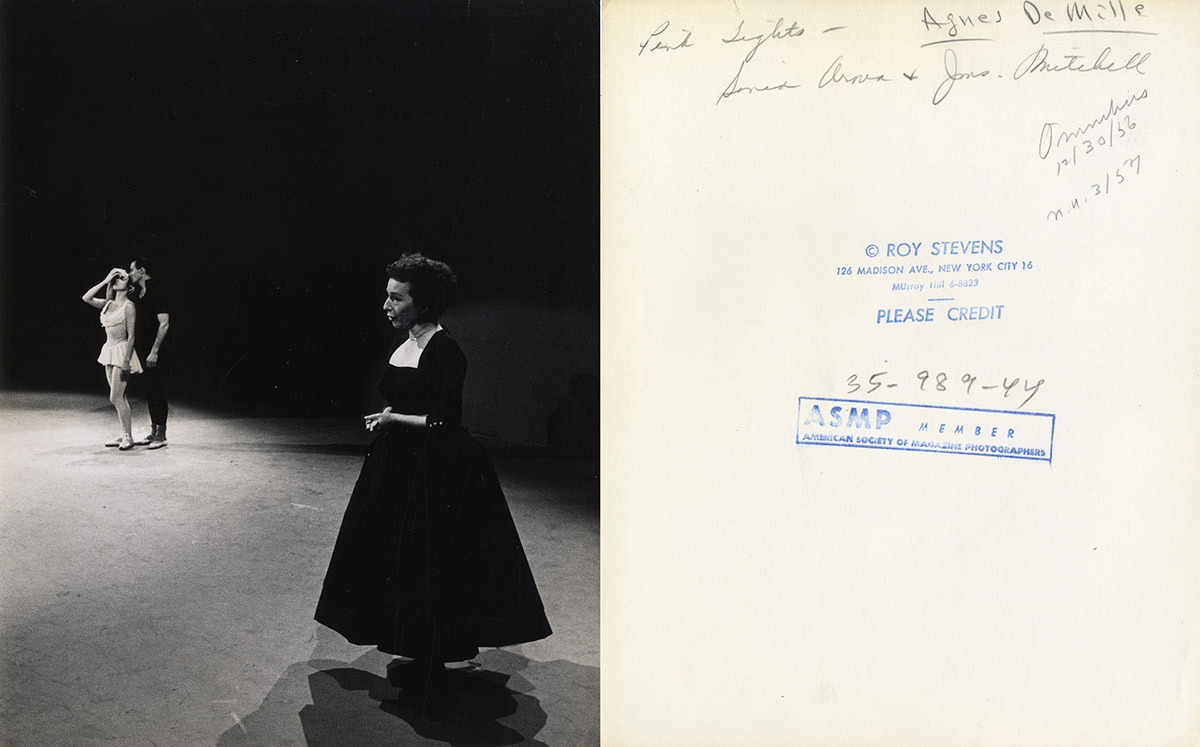 Agnes De Mille
Pink Tights -
Sonia Arova & Jms. Mitchell
Omnibus
12/30/56
n.u. 3/57
© ROY STEVENS
126 MADISON AVE., NEW YORK CITY 16
MUrray Hill 6-8823
PLEASE CREDIT
35-989-44
ASMP MEMBER
AMERICAN SOCIETY OF MAGAZINE PHOTOGRAPHERS